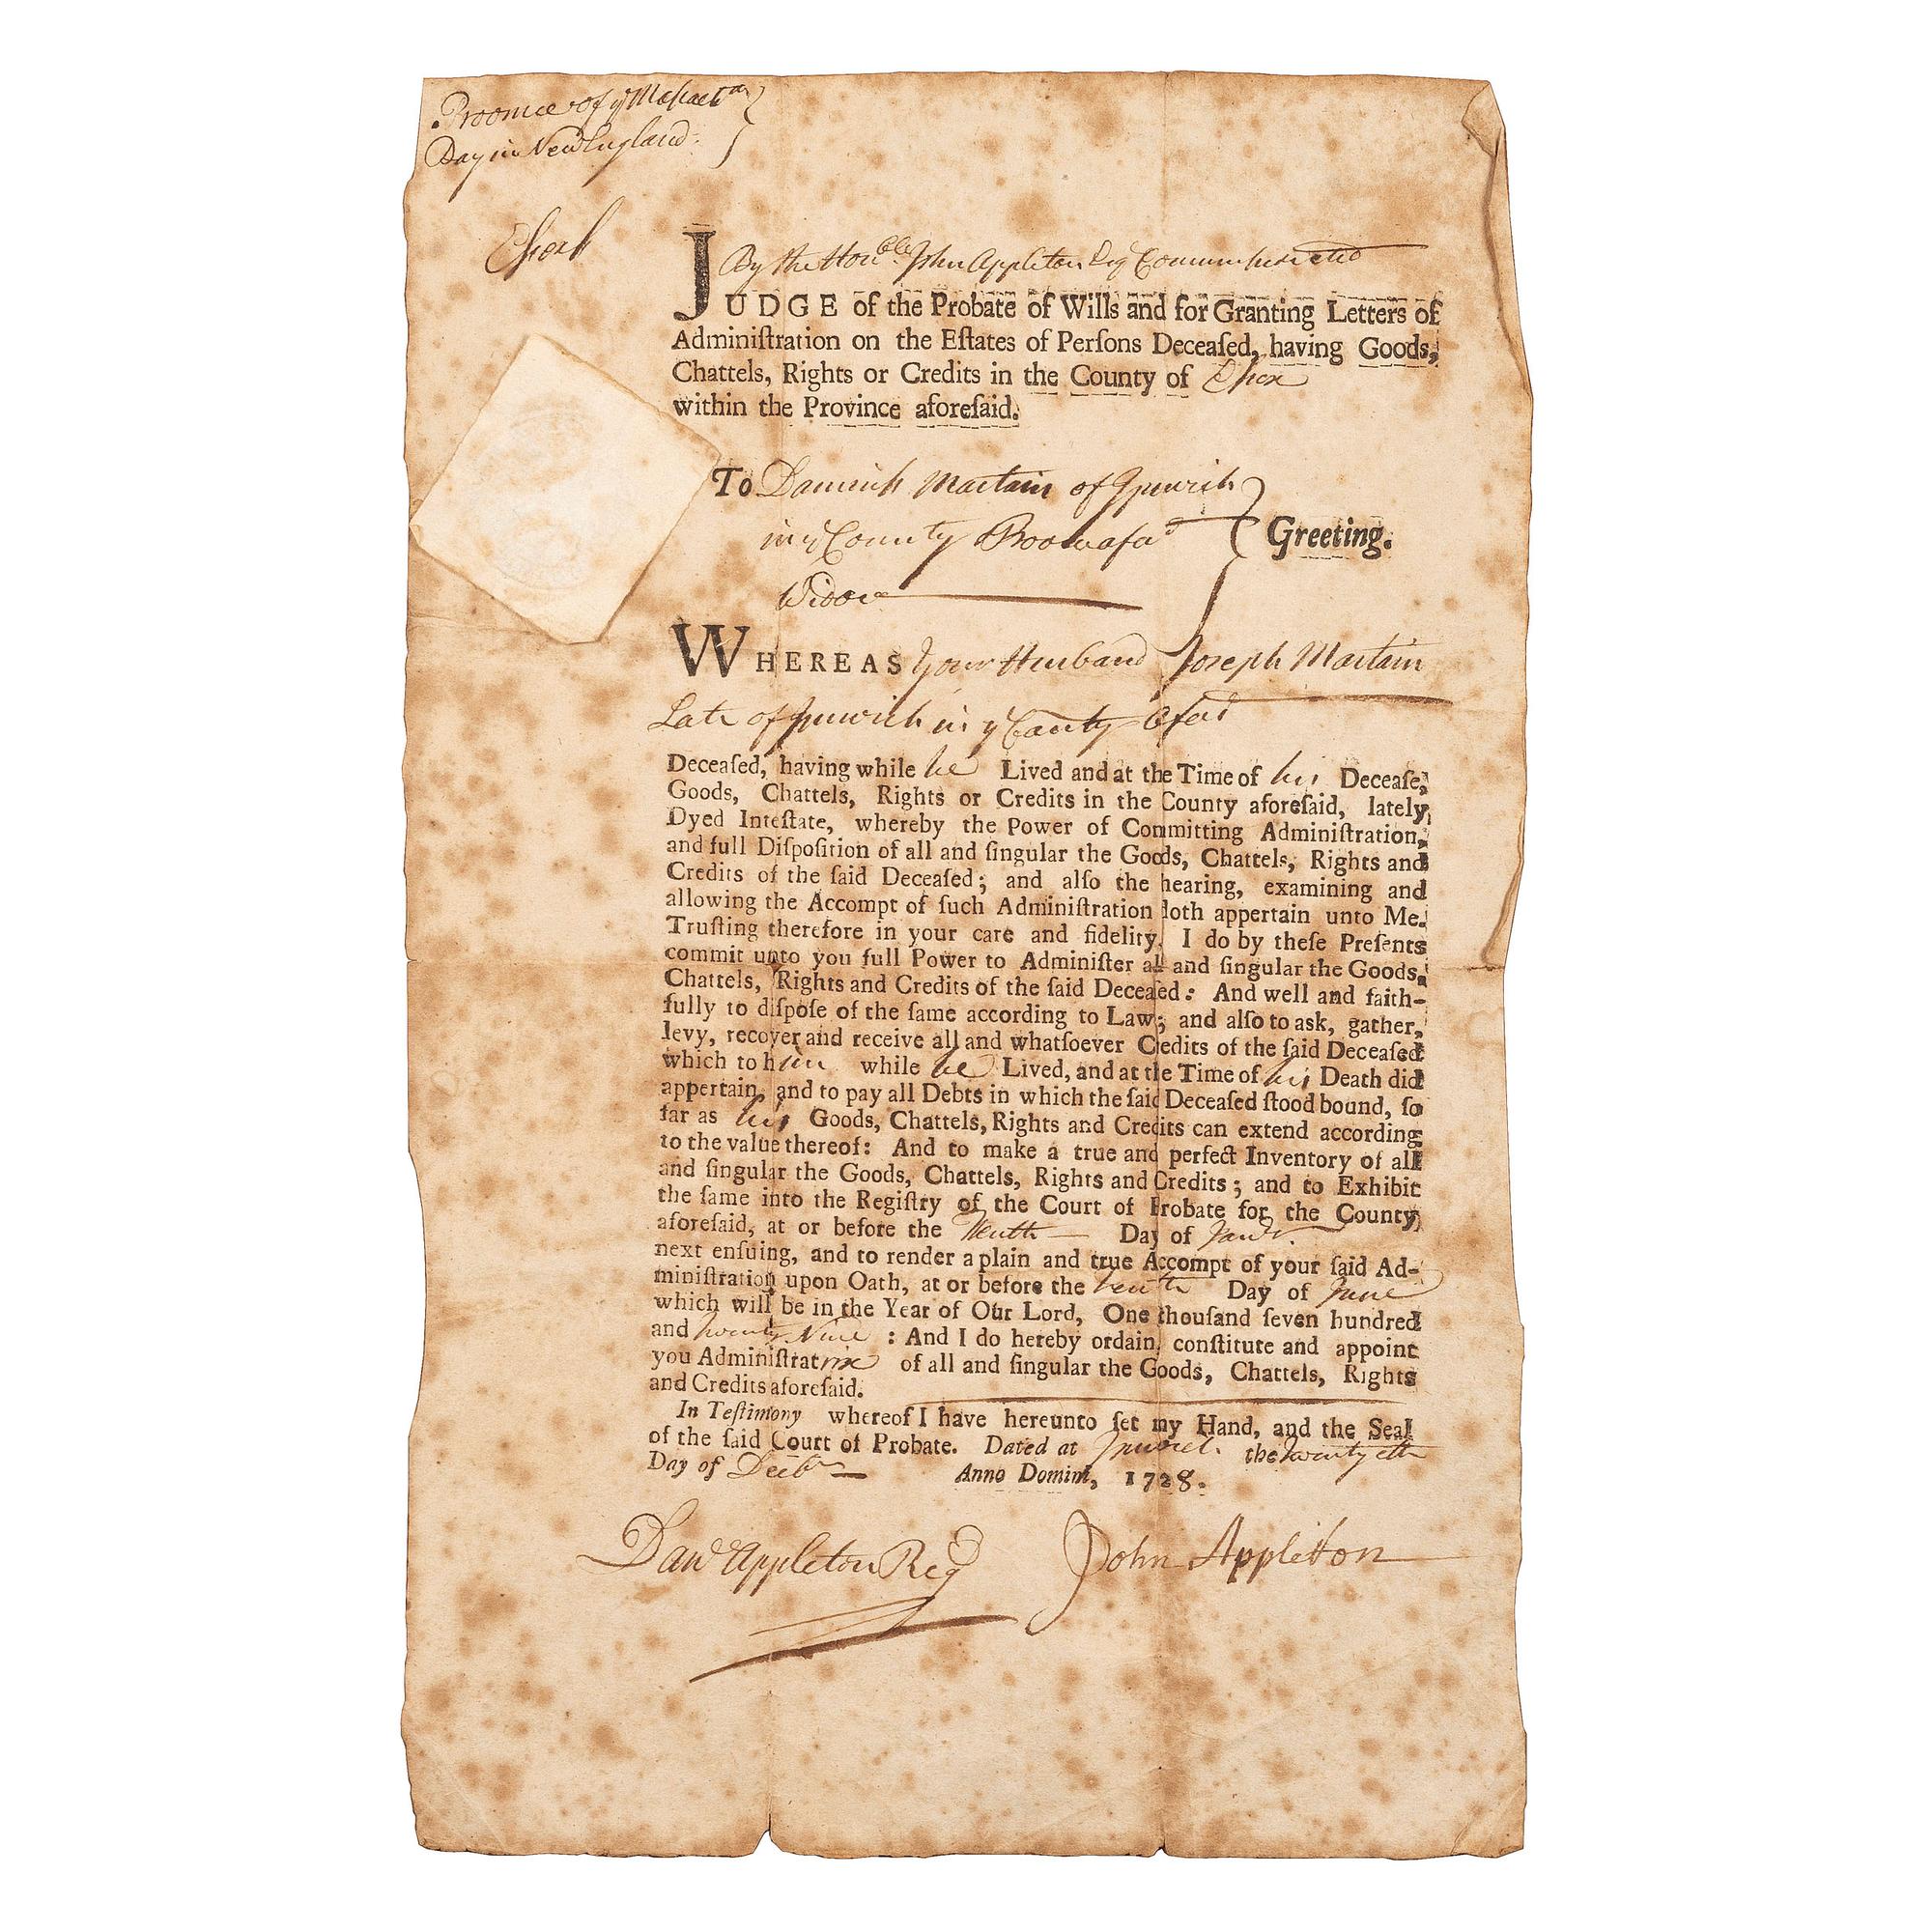 Province of yᵉ Massachᵗˢ
Bay in New England
Essex ss
By the Honᵇˡᵉ John Appleton Esq Commissionated
JUDGE of the Probate of Wills and for Granting Letters of
Adminiſtration on the Eſtates of Perſons Deceaſed, having Goods,
Chattels, Rights or Credits in the County of Essex
within the Province aforeſaid.
To Martain of Ipswich
in yᵉ County
Widow
Greeting.
WHEREAS your Husband Joseph Martain
Late of Ipswich in yᵉ County afoʳᵈ
Deceaſed, having while he Lived and at the Time of his Deceaſe,
Goods, Chattels, Rights or Credits in the County aforeſaid, lately
Dyed Inteſtate, whereby the Power of Committing Adminiſtration,
and full Diſpoſition of all and ſingular the Goods, Chattels, Rights and
Credits of the ſaid Deceaſed; and alſo the hearing, examining and
allowing the Accompt of ſuch Adminiſtration doth appertain unto Me.
Truſting therefore in your care and fidelity, I do by theſe Preſents
commit unto you full Power to Adminiſter all and ſingular the Goods,
Chattels, Rights and Credits of the ſaid Deceaſed: And well and faith-
fully to diſpoſe of the ſame according to Law; and alſo to ask, gather,
levy, recover and receive all and whatſoever Credits of the ſaid Deceaſed
which to him while he Lived, and at the Time of his Death did
appertain, and to pay all Debts in which the ſaid Deceaſed ſtood bound, ſo
far as his Goods, Chattels, Rights and Credits can extend according
to the value thereof: And to make a true and perfect Inventory of all
and ſingular the Goods, Chattels, Rights and Credits; and to Exhibit
the ſame into the Regiſtry of the Court of Probate for the County
aforeſaid, at or before the Tenth Day of Janʳʸ
next enſuing, and to render a plain and true Accompt of your ſaid Ad-
miniſtration upon Oath, at or before the tenth Day of June
which will be in the Year of Our Lord, One thouſand ſeven hundred
and twenty Nine : And I do hereby ordain, conſtitute and appoint
you Adminiſtratrix of all and ſingular the Goods, Chattels, Rights
and Credits aforeſaid.
In Teſtimony whereof I have hereunto ſet my Hand, and the Seal
of the ſaid Court of Probate. Dated at Ipswich the twentyeth
Day of Decbʳ Anno Domini, 1728.
Danˡ Appleton Regʳ
John Appleton